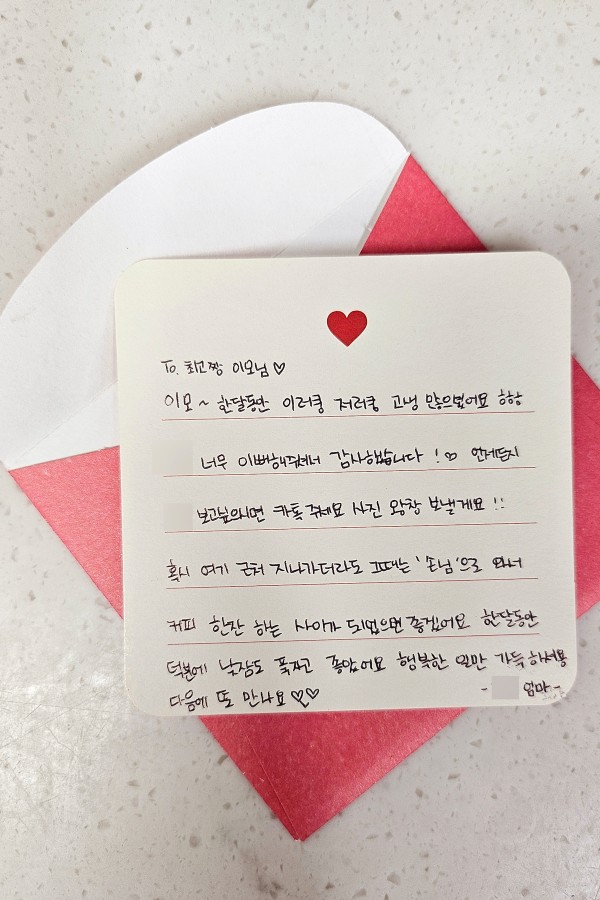 To. 최고짱 이모님 ♡
이모 ~ 한달동안 이러쿵 저러쿵 고생 많으셨어요 하핳
너무 이뻐해주셔서 감사했습니다 ! ♡ 언제든지
보고싶으시면 카톡 주세요 사진 왕창 보낼게요 !!
혹시 여기 근처 지나가더라도 그때는 '손님'으로 와서
커피 한잔 하는 사이가 되었으면 좋겠어요 한달동안
덕분에 낮잠도 푹자고 좋았어요 행복한 일만 가득하셔용
다음에 또 만나요 ♡♡
- 엄마 -